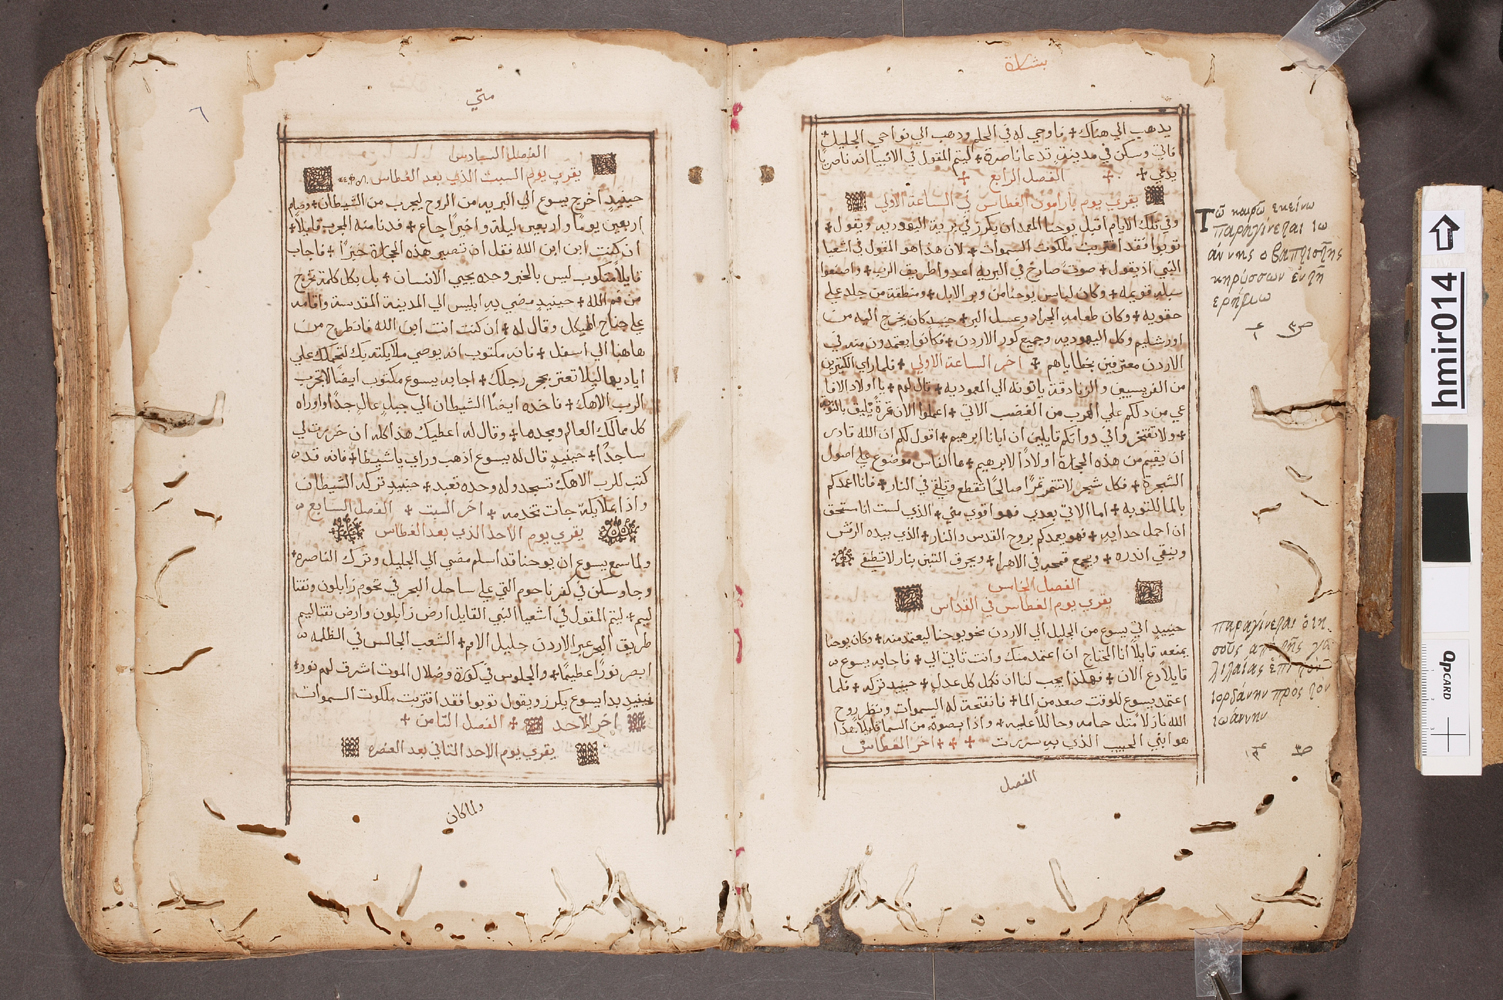 بشارة
يذهب الي هناك + فاوحي له في الحلم وذهب الي نواحي الجليل +
فاتي وسكن في مدينة تدعا ناصرة + ليتم المقول في الانبيا انه ناصريًا
يدعي + + الفصل الرابع +
يقري يوم بارامون الغطاس في الساعة الاولي
وفي تلك الايام اقبل يوحنا المعمدان يكرز في برية اليهوديه ويقول +
توبوا فقد اقتربت ملكوت السموات + لان هذا هو المقول في اشعيا
النبي اذ يقول + صوت صارخ في البريه اعدوا طريق الرب + واصنعوا
سبله قويمه + وكان لباس يوحنا من وبر الابل + ومنطقة من جلد علي
حقويه + وكان طعامه الجراد وعسل البر + حينيذ كان يخرج اليه من
اورشليم وكل اليهوديه وجميع كور الاردن + فكانوا يعتمدون منه في
الاردن معترفين بخطاياهم + اخر الساعة الاولي + فلما راي الكثيرين
من الفريسيين والزنادقة ياتونه الي المعموديه + قال لهم + يا اولاد الافا
عي من دلكم علي الهرب من الغضب الاتي + اعملوا الان ثمرةً تليق بالتوبه
+ ولا تفتخروا في ذواتكم قايلين ان ابانا ابرهيم + اقول لكم ان الله قادر
ان يقيم من هذه الحجارة اولادًا لابرهيم + ها الفاس موضوع علي اصول
الشجرة + فكل شجرٍ لا تثمر ثمرًا صالحًا تقطع وتلقي في النار + فانا اعمدكم
بالما للتوبة + اما الاتي بعدي فهو اقوي مني + الذي لست انا مستحق
ان احمل حداه + فهو يعمدكم بروح القدس والنار + الذي بيده الرفش
وينقي اندره + ويجمع قمحه في الاهرا + ويحرق التبن بنار لا تطفي
الفصل الخامس
يقري يوم الغطاس في القداس
حينيذٍ اتي يسوع من الجليل الي الاردن نحو يوحنا ليعتمد منه + وكان يوحنا
يمنعه قايلًا انا المحتاج ان اعتمد منك وانت تاتي الي + فاجابه يسوع
قايلا دع الان + فهكذا يجب لنا ان نكمل كل عدل + حينيذ تركه + فلما
اعتمد يسوع للوقت صعد من الما + فانفتحت له السموات ونظر روح
الله نازلا مثل حمامه وحالا عليه + واذا بصوتٍ من السما قايلا هذا
هو ابني الحبيب الذي به سررت + + + اخر الغطاس
الفصل
Τῶ καιρῶ ἐκείνω
παραγίνεται ἰω
άννης ο βαπτιστῆς
κηρύσσων ἐν τῇ
ερήμω
παραγίνεται ὁ ιη
σοῦς απὸ τῆς γα
λιλαίας ἐπὶ τον
ιορδάνην προς τον
ιωάννην
متي
٦
الفصل السادس
يقري يوم السبت الذي بعد الغطاس
حينيذٍ اخرج يسوع الي البريه من الروح ليجرب من الشيطان + وصام
اربعين يومًا واربعين ليلة واخيرًا جاع + فدنا منه المجرب قايلا +
ان كنت ابن الله فقل ان تصير هذه الحجارة خبزًا + فاجاب
قايلا مكتوب ليس بالخبز وحده يحيي الانسان + بل بكل كلمة تخرج
من فم الله + حينيذ مضي به ابليس الي المدينة المقدسة واقامه
علي جناح الهيكل وقال له + ان كنت انت ابن الله فانطرح من
هاهنا الي اسفل + فانه مكتوب انه يوصي ملايكته بك لتحملك علي
اياديها ليلا تعثر بحجرٍ رجلك + اجابه يسوع مكتوب ايضًا لا تجرب
الرب الاهك + فاخذه ايضًا الشيطان الي جبلٍ عالٍ جدًا واوراه
كل ممالك العالم ومجدها + وقال له اعطيك هذا كله ان خررت لي
ساجدًا + حينيذ قال له يسوع اذهب وراي يا شيطان + فانه قد
كتب للرب الاهك تسجد وله وحده تعبد + حينيذ تركه الشيطان
واذا ملايكة جات تخدمه + اخر السبت + الفصل السابع
يقري يوم الاحد الذي بعد الغطاس
ولما سمع يسوع ان يوحنا قد اسلم مضي الي الجليل وترك الناصره +
وجا وسكن في كفرناحوم التي علي ساحل البحر في تخوم زابلون ونفتا
ليم + ليتم المقول في اشعيا النبي القايل ارض زابلون وارض نفتاليم
طريق البحر عبر الاردن جليل الامم + الشعب الجالس في الظلمه
ابصر نورًا عظيمًا + والجلوس في كورة وضلال الموت اشرق لهم نور +
حينيذ بدا يسوع يكرز ويقول توبوا فقد اقتربت ملكوت السموات
اخر الاحد + الفصل الثامن +
يقري يوم الاحد الثاني بعد العنصره
ولما كان